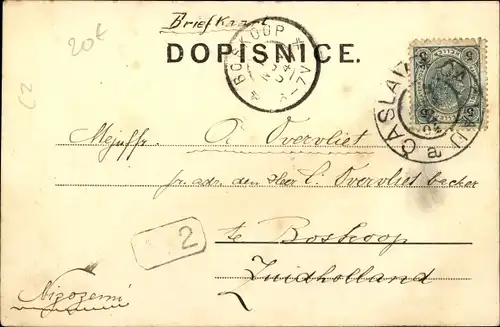 20t
Briefkaart
DOPISNICE.
BOSKOOP
5
ČASLAU
a
Mejuffr. A Overvliet
pr. adr. den Heer C. Overvliet becker
2
te Boskoop
Zuidholland
Nizozemi